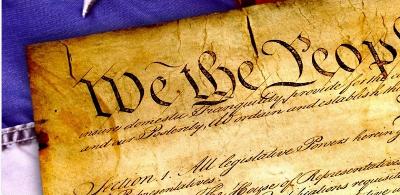 We the People
insure domestic Tranquility, provide for the co
and our Posterity, do ordain and establish th
Section. 1. All legislative Powers herein g
Representatives.
The House of Representatives
requisi